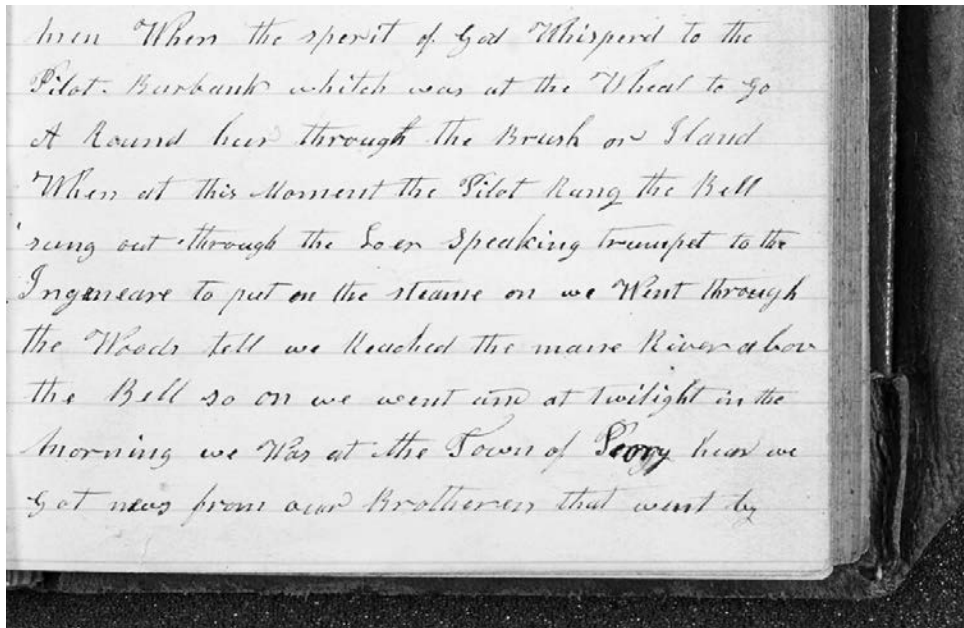 hren When the sperit of God Whisperd to the
Pilot. Burbank whitch was at the Wheal to go
A Round hear through the Brush or Iland
When at this Moment the Pilot Rung the Bell
sung out through the Loer Speaking trumpet to the
Ingeneare to put on the steame on we Went through
the Woods tell we Reached the mane River abov
the Bell so on we went and at twilight in the
morning we Was at the Town of Peory hear we
Got news from our Brotheren that went by